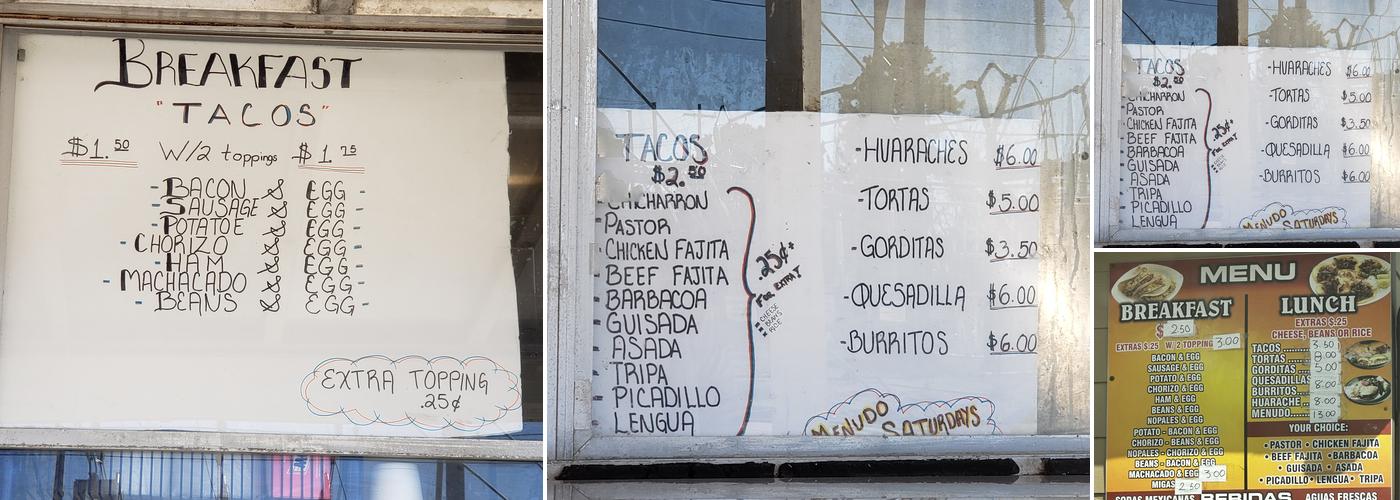 BREAKFAST
"TACOS"
$1.50 W/2 toppings $1.75
- BACON & EGG -
- SAUSAGE & EGG -
- POTATOE & EGG -
- CHORIZO & EGG -
- HAM & EGG -
- MACHACADO & EGG -
- BEANS & EGG -
EXTRA TOPPING
.25¢
TACOS
$2.50
- CHICHARRON
- PASTOR
- CHICKEN FAJITA
- BEEF FAJITA
- BARBACOA
- GUISADA
- ASADA
- TRIPA
- PICADILLO
- LENGUA
.25¢+
FOR EXTRA
CHEESE
BEANS
RICE
-HUARACHES $6.00
-TORTAS $5.00
-GORDITAS $3.50
-QUESADILLA $6.00
-BURRITOS $6.00
MENUDO SATURDAYS
TACOS
$2.50
- CHICHARRON
- PASTOR
- CHICKEN FAJITA
- BEEF FAJITA
- BARBACOA
- GUISADA
- ASADA
- TRIPA
- PICADILLO
- LENGUA
.25¢+
FOR EXTRA
-HUARACHES $6.00
-TORTAS $5.00
-GORDITAS $3.50
-QUESADILLA $6.00
-BURRITOS $6.00
MENUDO SATURDAYS
MENU
BREAKFAST
$ 2.50
EXTRAS $.25 W/ 2 TOPPING 3.00
BACON & EGG
SAUSAGE & EGG
POTATO & EGG
CHORIZO & EGG
HAM & EGG
BEANS & EGG
NOPALES & EGG
POTATO - BACON & EGG
CHORIZO - BEANS & EGG
NOPALES - CHORIZO & EGG
BEANS - BACON & EGG
MACHACADO & EGG 3.00
MIGAS 2.50
LUNCH
EXTRAS $.25
CHEESE, BEANS OR RICE
TACOS.......... 3.50
TORTAS ...... 8.00
GORDITAS.... 5.00
QUESADILLAS 8.00
BURRITOS.... 8.00
HUARACHE... 8.00
MENUDO....... 13.00
YOUR CHOICE:
• PASTOR • CHICKEN FAJITA
• BEEF FAJITA • BARBACOA
• GUISADA • ASADA
• PICADILLO • LENGUA • TRIPA
SODAS MEXICANAS BEBIDAS AGUAS FRESCAS